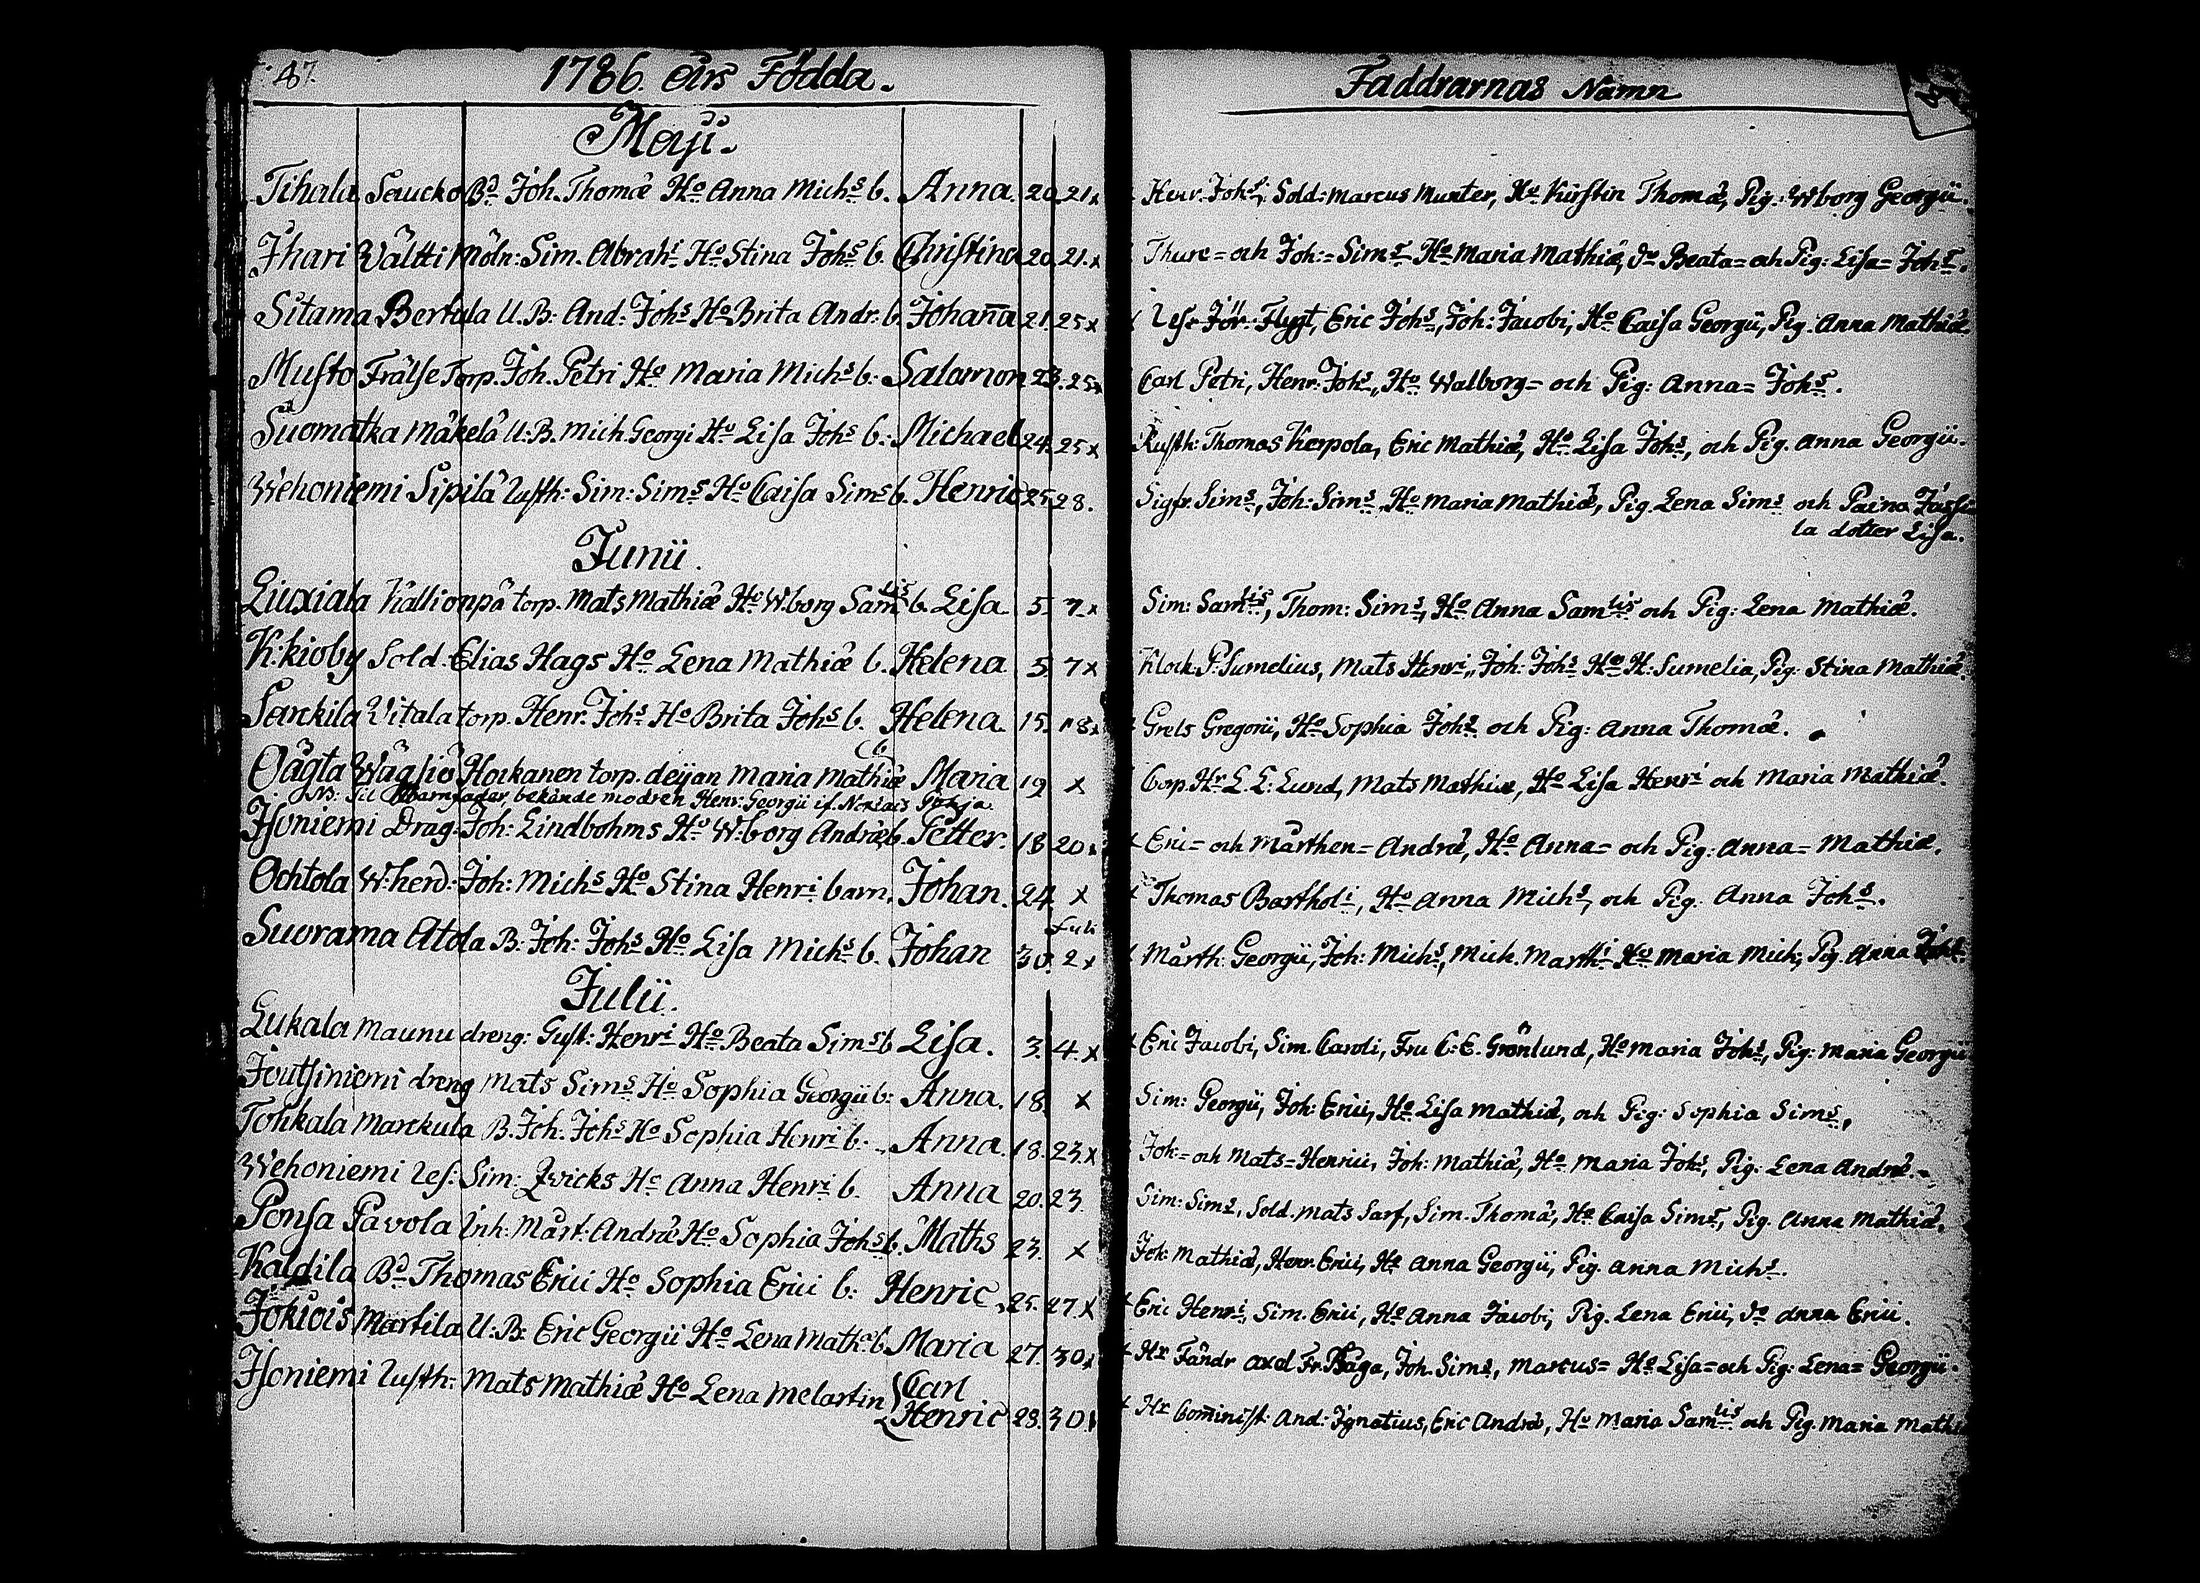 47.
1786. Års Födda.
Maji.
Tihala Saucko Bd. Joh. Thomæ Ho Anna Michs b. Anna. 20. 21 x
Ihari Wältti Möln: Sim. Abrahi Ho Stina Johs b. Christina 20. 21. x
Sitama Bertula U. B: And: Johs Ho Brita Andr. b. Johan̄a 21. 25 x
Musto Frälse Torp. Joh. Petri Ho Maria Michs b. Salomon 23. 25 x
Suomatka Mäkelä U: B. Mich. Georgi Ho Lisa Johs b. Michael 24. 25 x
Wehoniemi Sipilä Rusth: Sim: Sims Ho Caisa Sims b. Henric 25. 28.
Junii.
Liuxiala Kallionpä torp. Mats Mathiæ Ho W:borg Samlis b. Lisa 5. 7. x
K:kioby Sold. Elias Hags Ho Lena Mathiæ b. Helena 5. 7 x
Sarckila Vitala torp. Henr. Johs Ho Brita Johs b. Helena. 15. 18. x
Hockanen torp. deijan Maria Mathiæ b. Maria 19 x
NB: Til Barnfader bekände modren Henr. Georgii if.
Isoniemi Drag: Joh: Lindbohms Ho W:borg Andræ b. Petter. 18 20.
Ochtola W:herd: Joh: Michs Ho Stina Henri barn, Johan. 24. x
Suorama Atola B: Joh: Johs Ho Lisa Michs b. Johan 30. Juli 2 x
Julii.
Lukala Maunu dreng: Gust: Henri Ho Beata Sims b Lisa. 3. 4. x
Joutsiniemi dreng Mats Sims Ho Sophia Georgii b: Anna. 18. x
Tohkala Marckula B. Joh. Johs Ho Sophia Henri b. Anna. 18. 23. x
Wehoniemi Res: Sim: Qvicks Ho Anna Henri b. Anna 20. 23.
Ponsa Pavola Inh: Mårt. Andræ Ho Sophia Johs b. Maths 23. x
Kaldila Bd Thomas Erici Ho Sophia Erici b: Henric 25. 27. x
Jokiois Martila U: B: Eric Georgii Ho Lena Math: b. Maria 27. 30 x
Isoniemi Rusth: Mats Mathiæ Ho Lena Melartin { Carl
Henric 28. 30.
Faddrarnas Namn
Henr. Johs; Sold: Marcus Munter, Ho Kirstin Thomæ, Pig: W:borg Georgii.
Thure= och Joh:= Sims Ho Maria Mathiæ, do Beata= och Pig: Lisa= Johs.
Res. Jör. Flygt, Eric Johs, Joh: Jacobi, Ho Caisa Georgii, Pig. Anna Mathiæ
Carl Petri, Henr. Johs, Ho Walborg= och Pig: Anna= Johs.
Rusth: Thomas Kerpola, Eric Mathiæ, Ho Lisa Johs, och Pig. Anna Georgii.
Sigfr. Sims, Joh: Sims Ho Maria Mathiæ, Pig. Lena Sims och Paina Jussi
la dotter Lisa.
Sim: Samlis, Thom: Sims, Ho Anna Samlis och Pig: Lena Mathiæ.
Klock. P: Sumelius, Mats Henri, Joh: Johs Ho H: Sumelia, Pig: Stina Mathiæ.
Grels Gregorii, Ho Sophia Johs och Pig: Anna Thomæ.
Corp. Hr L. L: Lund, Mats Mathiæ, Ho Lisa Henri och Maria Mathiæ.
Eric= och Mårthen= Andræ, Ho Anna= och Pig: Anna= Mathiæ.
Thomas Bartholi, Ho Anna Michs, och Pig: Anna Johs.
Mårth: Georgii, Joh: Michs, Mich. Marthi Ho Maria Mich, Pig. Anna
Eric Jacobi, Sim. Caroli, Fru C: E. Grönlund, Ho Maria Johs, Pig: Maria Georgii
Sim: Georgii, Joh: Erici, Ho Lisa Mathiæ, och Pig: Sophia Sims,
Joh:= och Mats= Henrici, Joh: Mathiæ, Ho Maria Johs, Pig: Lena Andræ.
Sim: Sims, Sold. Mats Sarf, Sim. Thomæ, Ho Caisa Sims, Pig. Anna Mathiæ.
Joh: Mathiæ, Henr. Erici, Ho Anna Georgii, Pig. Anna Michs.
Eric Henri, Sim. Erici, Ho Anna Jacobi, Pig. Lena Erici, do Anna Erici.
Hr Fändr Axel Fr. Båga, Joh. Sims, Marcus= Ho Lisa= och Pig: Lena= Georgii.
Hr Com̄inist: And: Ignatius, Eric Andræ, Ho Maria Samlis och Pig. Maria Math